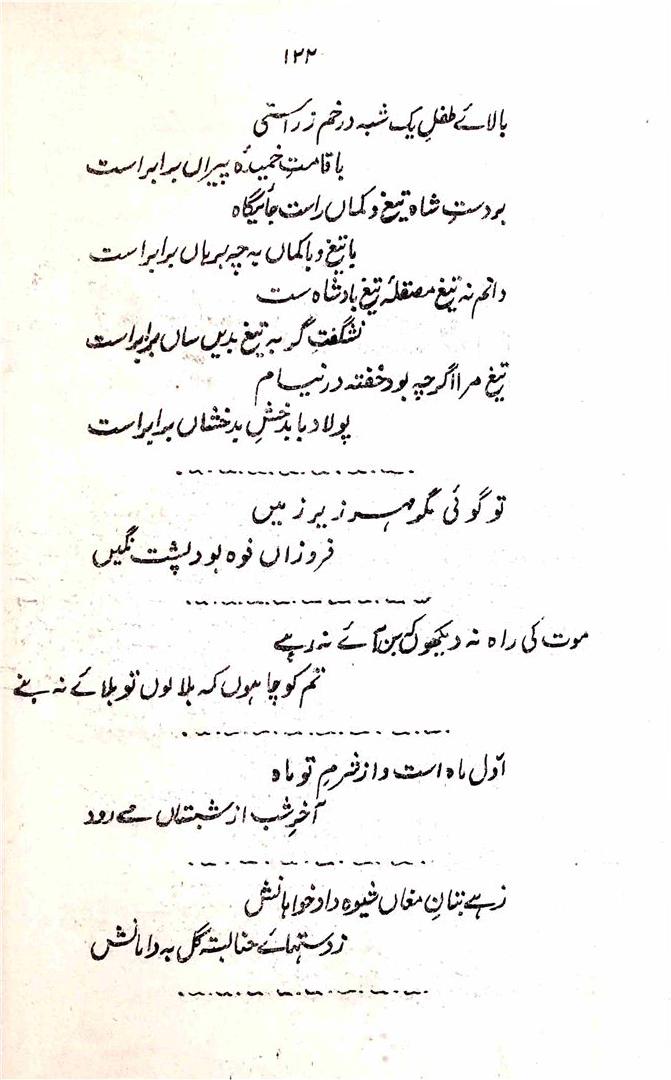 ۱۲۲
بالائے طفلِ یک شبہ در خم ز راستی
با قامتِ خمیدۂ پیراں برابر است
بر دستِ شاہ تیغ و کماں راست جائیگاہ
با تیغ و با کماں بہ چہ برہاں برابر است
دانم نہ تیغ مصقلۂ تیغ بادشاہ ست
نشگفت گر بہ تیغ بدیں ساں برابر است
تیغ مرا اگرچہ بود خفتہ در نیام
پولاد با بدخشِ بدخشاں برابر است
تو گوئی مگر مہر زیر زمیں
فروزاں فوہ بود پشت نگیں
موت کی راہ نہ دیکھوں کہ بن آئے نہ رہے
تم کو چاہوں کہ بلا لوں تو بلائے نہ بنے
اوّل ماہ است و از شرمِ تو ماہ
آخرِ شب از شبستاں مے رود
زہے بتانِ مغاں شیوہ داد خواہانش
ز دستہائے حنا بستہ گل بہ دامانش